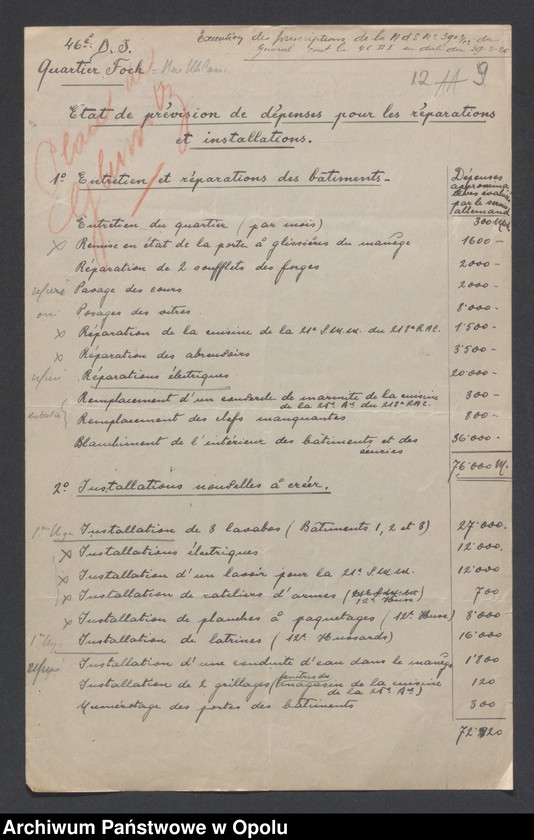 46e D. I.
Execution des prescriptions de la N d S No
Général en date du
Quartier Foch
12 9
Etat de prévision de dépenses pour les réparations
et installations.
Dépenses
approxima
tives évaluées
par le service
allemand
1o Entretien et réparations des bâtiments -
Entretien du quartier (par mois) 300
x Remise en état de la porte à glissières du manège 1600 -
Réparation de 2 soufflets des forges 2000 -
Pavage des cours 2000 -
Posages des vitres. 8'000 -
x Réparation de la cuisine de la 21e S.M.M. du 218e RAC. 1'500 -
x Réparation des abreuvoirs 3'500 -
Réparations électriques 20'000 -
Remplacement d'un couvercle de marmite de la cuisine 300 -
de la 25e As. du 218e RAC.
Remplacement des clefs manquantes 800 -
Blanchiment de l'intérieur des bâtiments et des 36'000 -
écuries
76'000 M.
2o Installations nouvelles à créer.
Installation de 3 lavabos (Bâtiments 1, 2 et 3) 27'000.
x Installations électriques 12'000.
x Installation d'un lavoir pour la 21e S.M.M. 12'000
x Installation de rateliers d'armes ( 700
12e Huss)
x Installation de planches à paquetages (12e Huss) 3'000
Installation de latrines (12e Hussards) 16'000
Installation d'une conduite d'eau dans le manège 1'800
Installation de 2 grillages (fenêtres du
magasin de la cuisine 120
de la 25e As)
Numérotage des portes des bâtiments 300
72'920
Archiwum Państwowe w Opolu